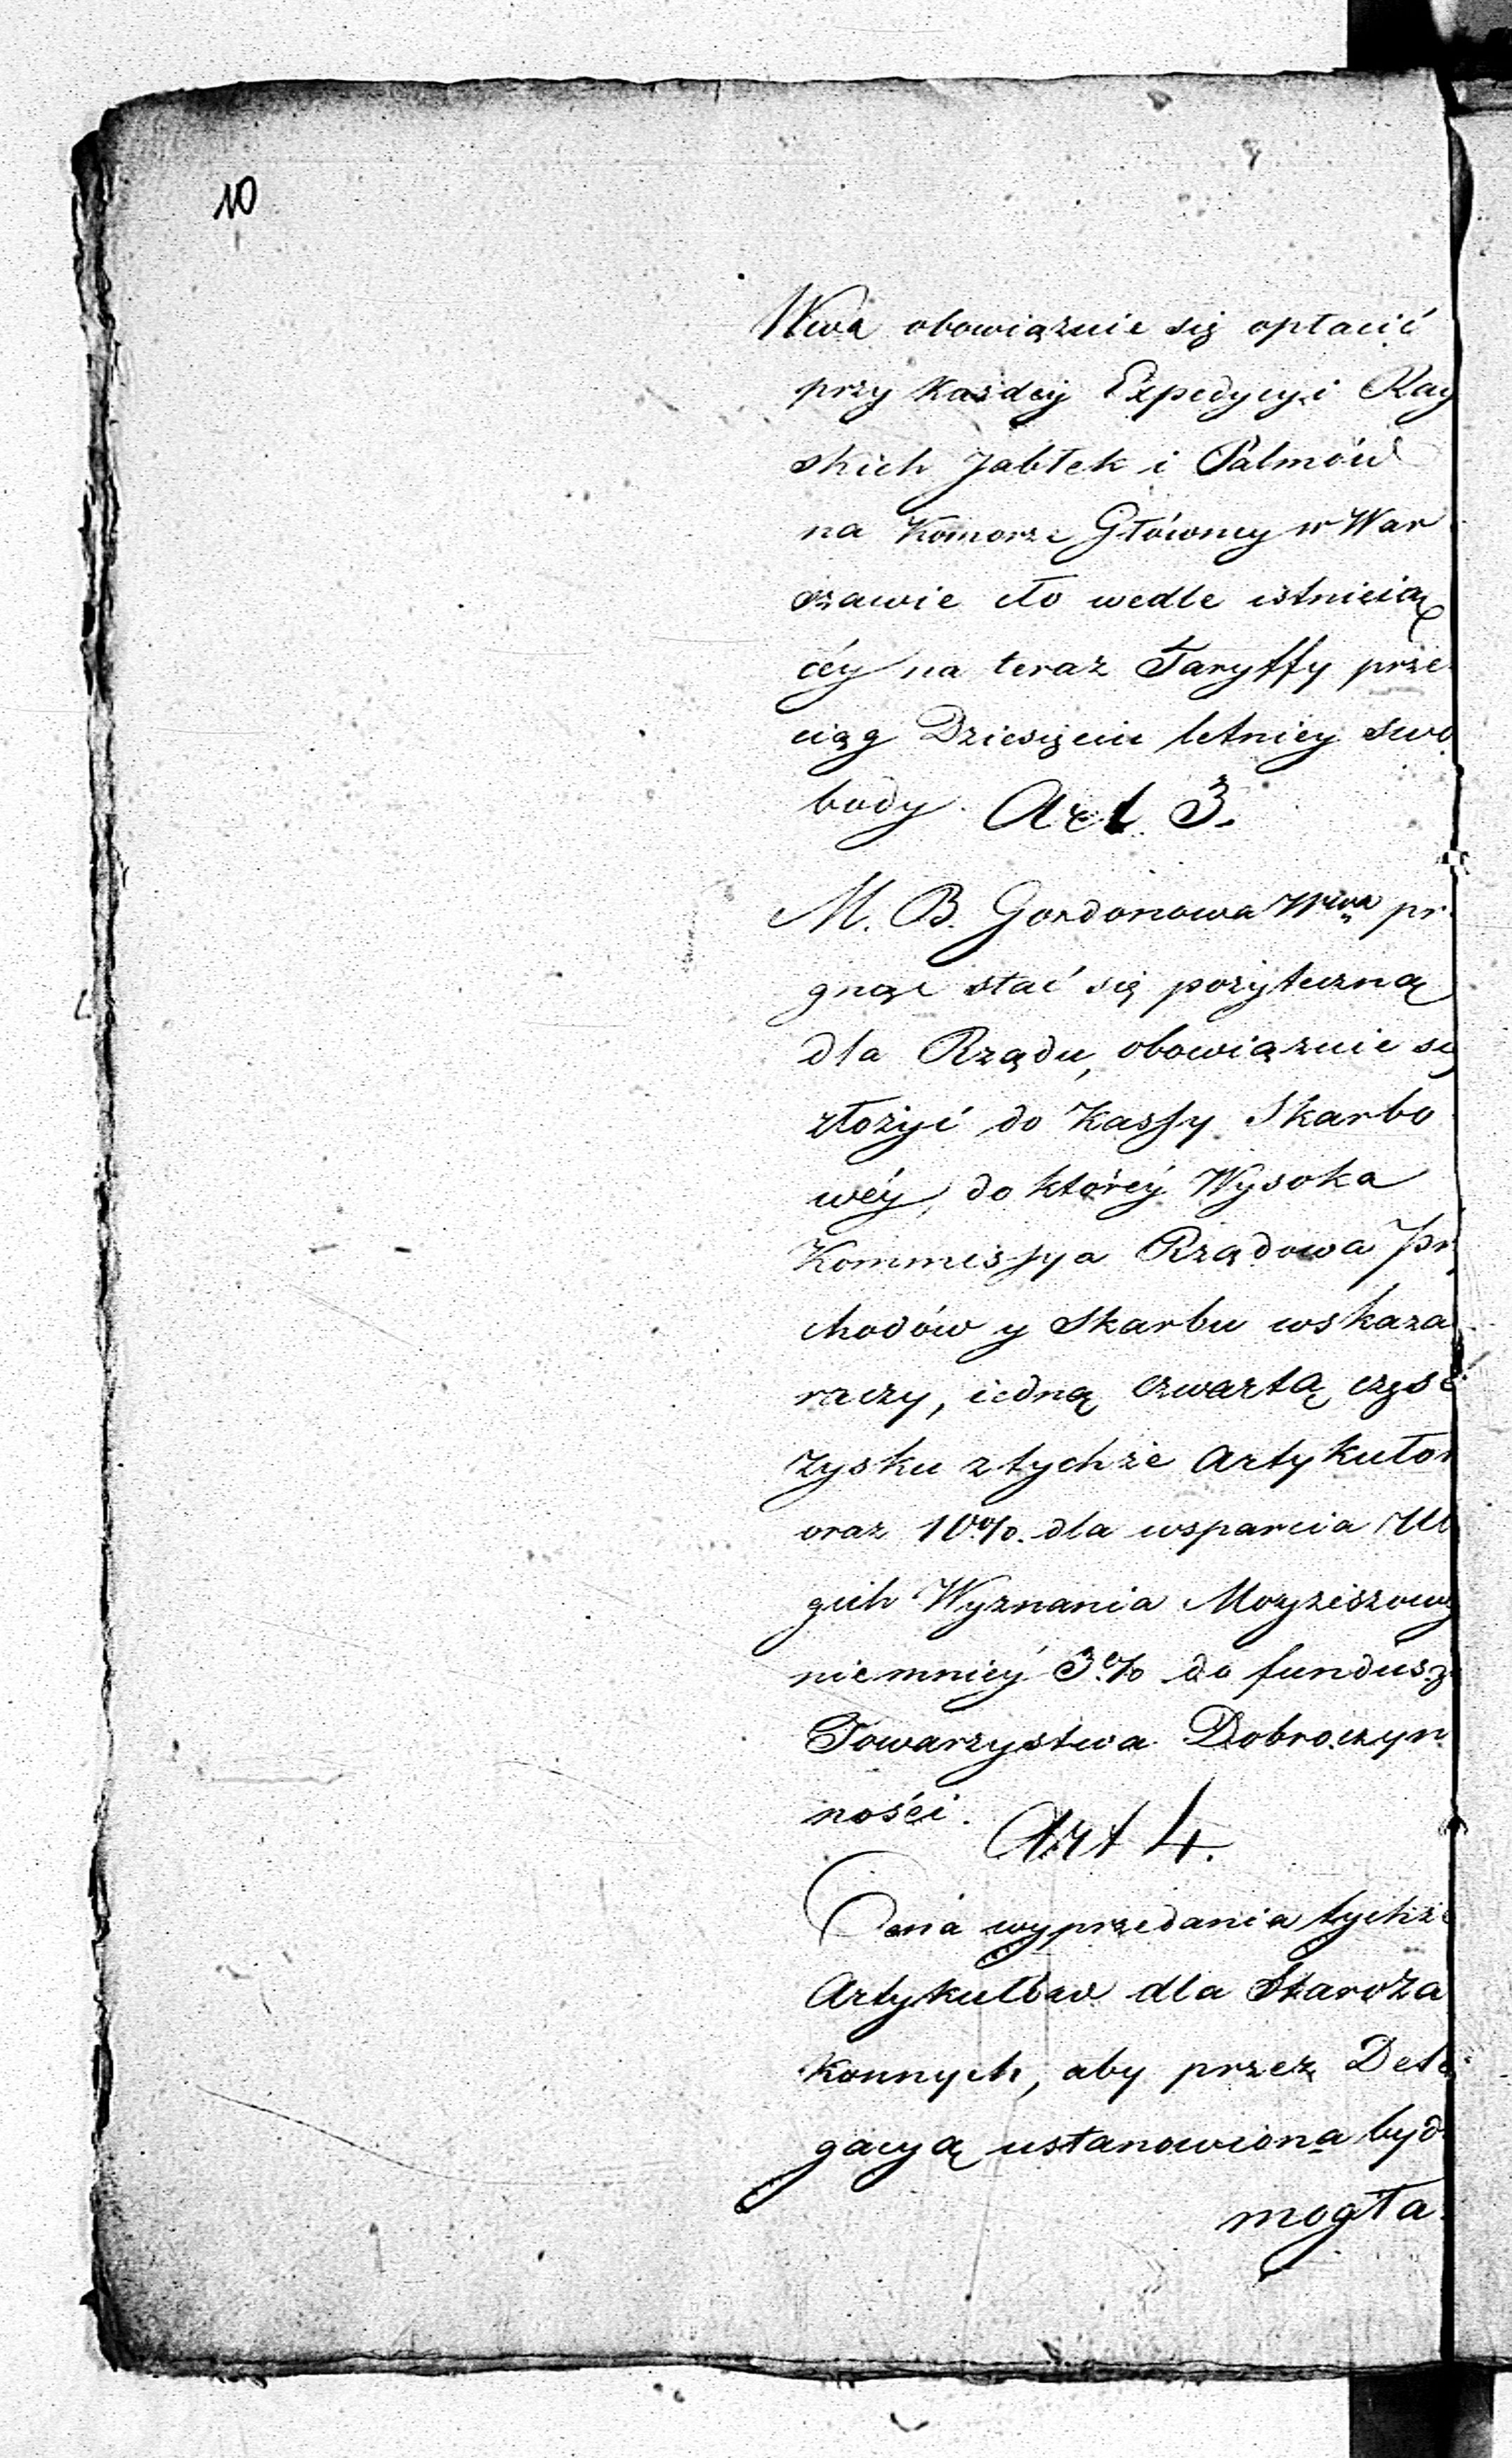 10
Wwa obowiązuie się opłacić
przy każdéy Expedycyi Ray
skich Jabłek i Palmów
na Komorze Główney w War
szawie cło wedle istnieią
céy na teraz Taryffy prze
ciąg Dziesięcio letniey swo
body. Art 3.
M. B. Gordonowa Wwa pr
gnąc stać się pożyteczną
dla Rządu, obowiązuie się
złożyć do Kassy Skarbo
wéy, do któréy Wysoka
Kommissya Rządowa Prz
chodów y Skarbu wskaza
raczy, iedną czwartą część
zysku z tychże Artykułów
oraz 10%. dla wsparcia Ub
gich Wyznania Moyżeszowe
niemniéy 3% do fundusz
Towarzystwa Dobroczyn
ności.
Art 4.
Cena wyprzedania tychże
Artykułów dla Staroza
konnych, aby przez Dele
gacyą ustanowiona byd
mogła.